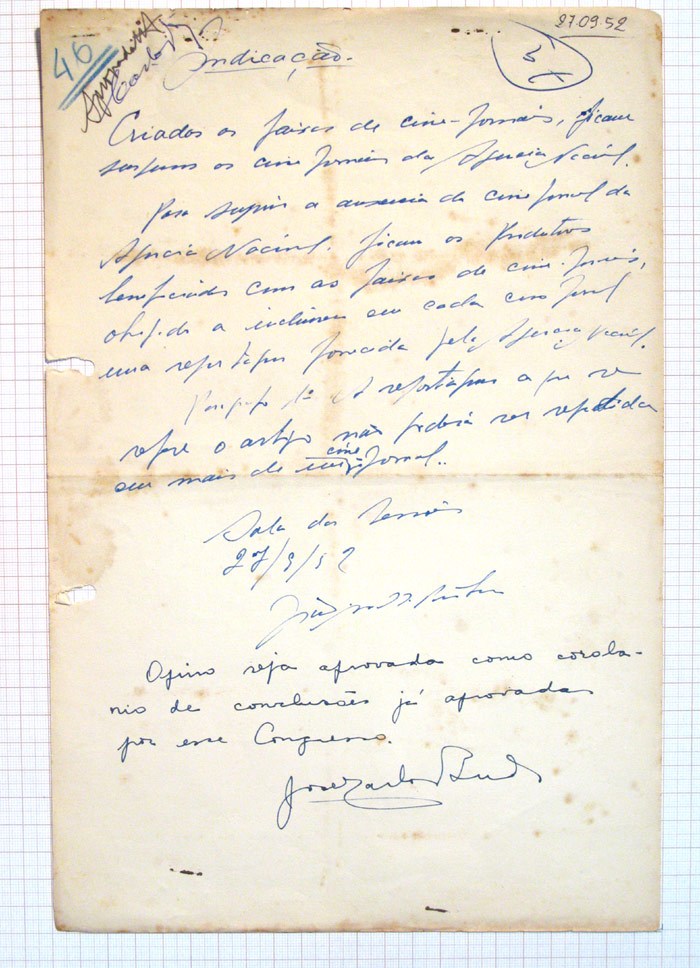 27.09.52
46
Indicação.
Criados as faixas de cine-Jornais, ficam
suspensos os cine Jornais da Agencia Nacional.
Para suprir a ausencia do cine Jornal da
Agencia Nacional. ficam os Produtores
beneficiados com as faixas de cine-Jornais,
a incluirem em cada cine Jornal
uma reportagem fornecida pela Agencia Nacional.
Paragrafo 1º A reportagem a que se
refere o artigo não poderá ser repetida
em mais de um cine Jornal..
Sala das Sessões
27/9/52
Opino seja aprovada como corola-
rio de conclusões já aprovadas
por esse Congresso.